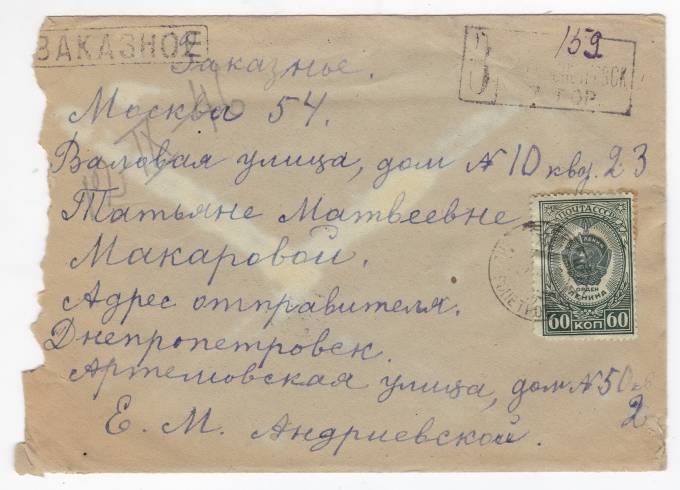 ЗАКАЗНОЕ
159
З
Заказное.
Москва 54.
Валовая улица, дом № 10 кв. 23
Татьяне Матвеевне
Макаровой.
Адрес отправителя.
Днепропетровск.
Артемовская улица, дом № 50 кв
2
Е. М. Андриевской.
ПОЧТА СССР
ОРДЕН
ЛЕНИНА
60 КОП 60